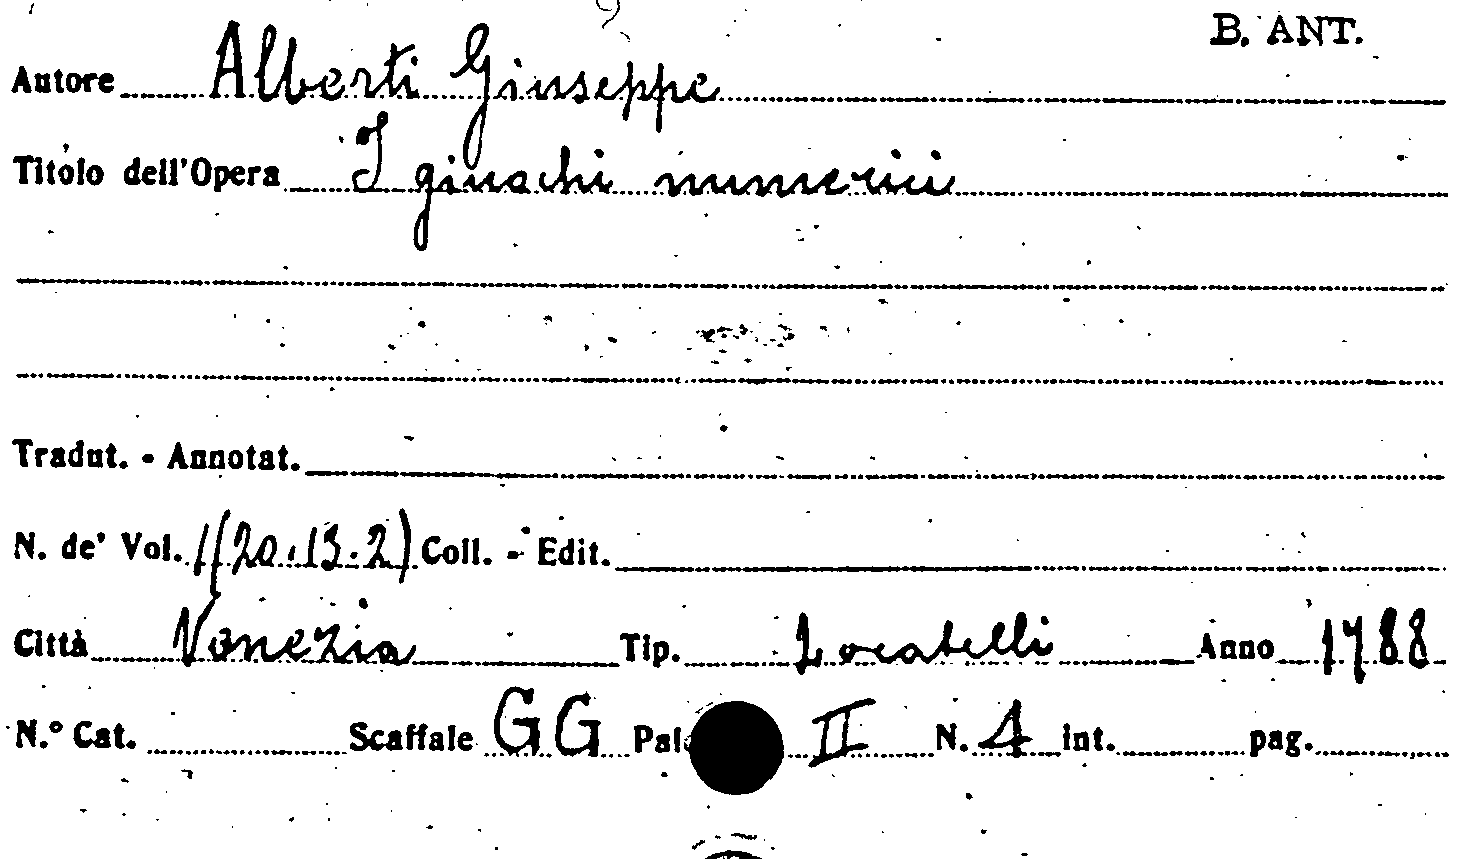 B. ANT.
Autore Alberti Giuseppe
Titolo dell'Opera I giuochi numerici
Tradut. - Annotat.
N. de' Vol. 1 (20.13.2) Coll. - Edit.
Città Venezia Tip. Locatelli Anno 1788
N.° Cat. Scaffale GG Pal II N. 4 int. pag.